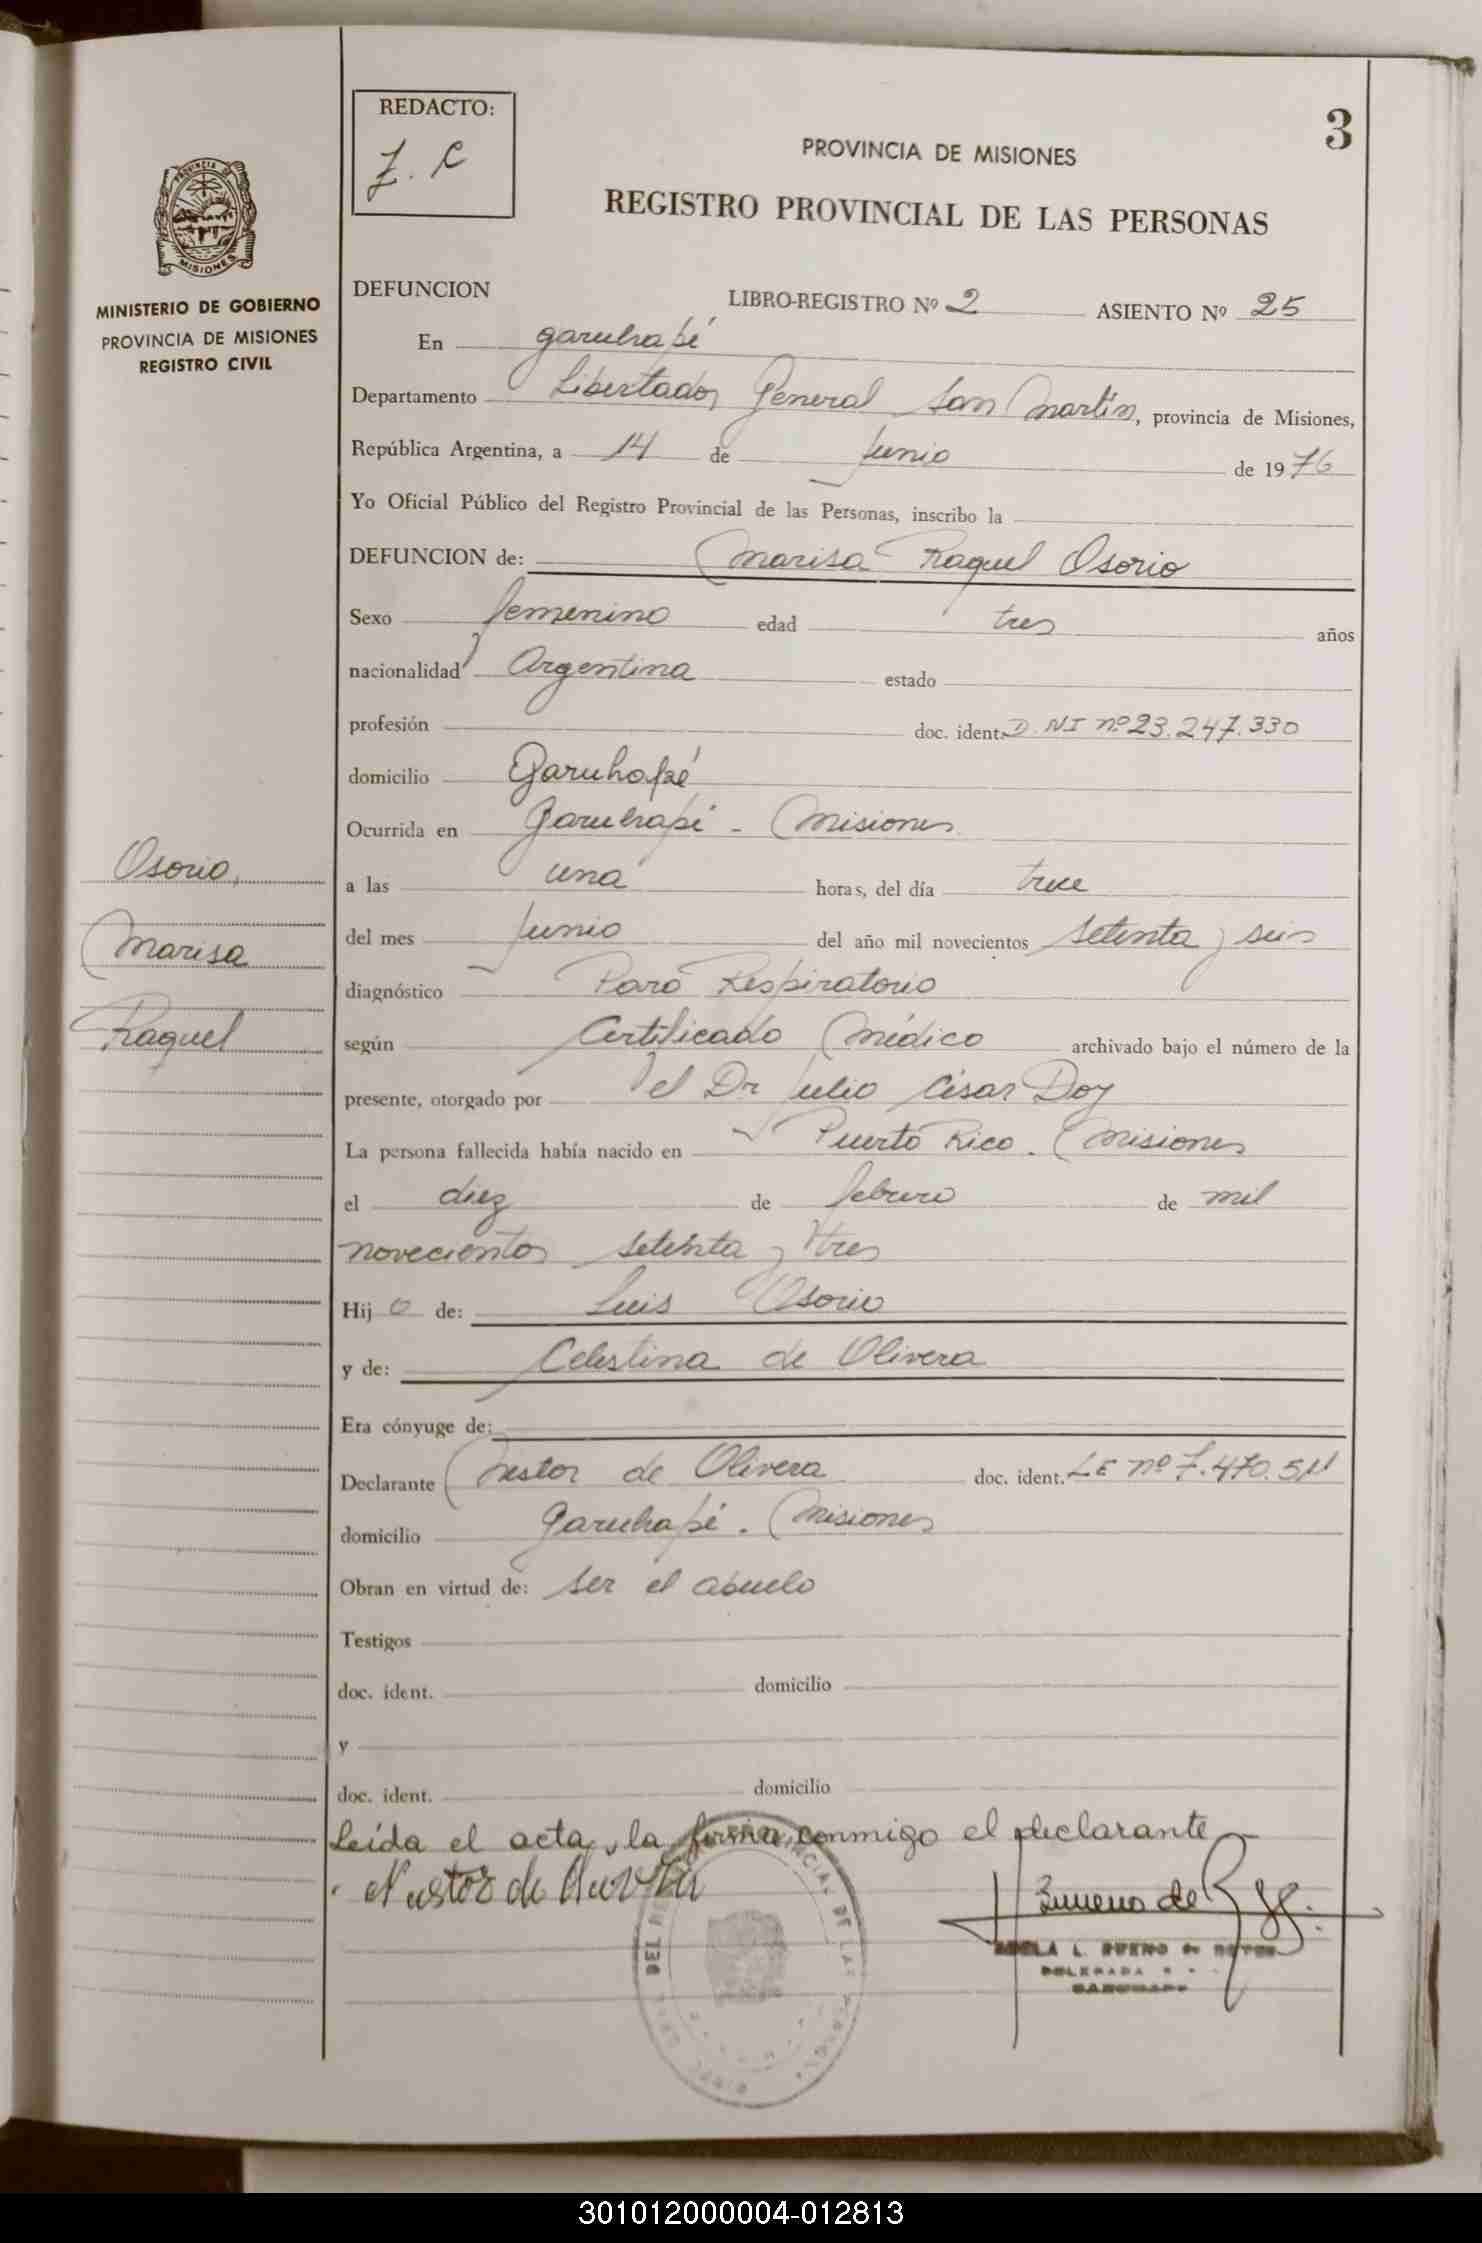 REDACTO:
Z. C
3
PROVINCIA DE MISIONES
REGISTRO PROVINCIAL DE LAS PERSONAS
PROVINCIA DE
MISIONES
MINISTERIO DE GOBIERNO
PROVINCIA DE MISIONES
REGISTRO CIVIL
DEFUNCION LIBRO-REGISTRO Nº 2 ASIENTO Nº 25
En Garuhapé
Departamento Libertador General San Martín, provincia de Misiones,
República Argentina, a 14 de Junio de 1976
Yo Oficial Público del Registro Provincial de las Personas, inscribo la
DEFUNCION de: Marisa Raquel Osorio
Sexo femenino edad tres años
nacionalidad Argentina estado
profesión doc. ident. D.NI nº 23.247.330
domicilio Garuhapé
Ocurrida en Garuhapé - Misiones
Osorio,
Marisa
Raquel
a las una horas, del día trece
del mes Junio del año mil novecientos setenta y seis
diagnóstico Paro Respiratorio
según Certificado Médico archivado bajo el número de la
presente, otorgado por el Dr Julio César Doy
La persona fallecida había nacido en Puerto Rico. Misiones
el diez de febrero de mil
novecientos setenta y tres
Hijo de: Luis Osorio
y de: Celestina de Olivera
Era cónyuge de:
Declarante Nestor de Olivera doc. ident. LE nº 7.470.511
domicilio Garuhapé. Misiones
Obran en virtud de: ser el abuelo
Testigos
doc. ident. domicilio
y
doc. ident. domicilio
Leída el acta, la firma conmigo el declarante
Nestor de Olivera
Bueno de
L. BUENO de REYES
DELEGADA
GARUHAPE
301012000004-012813